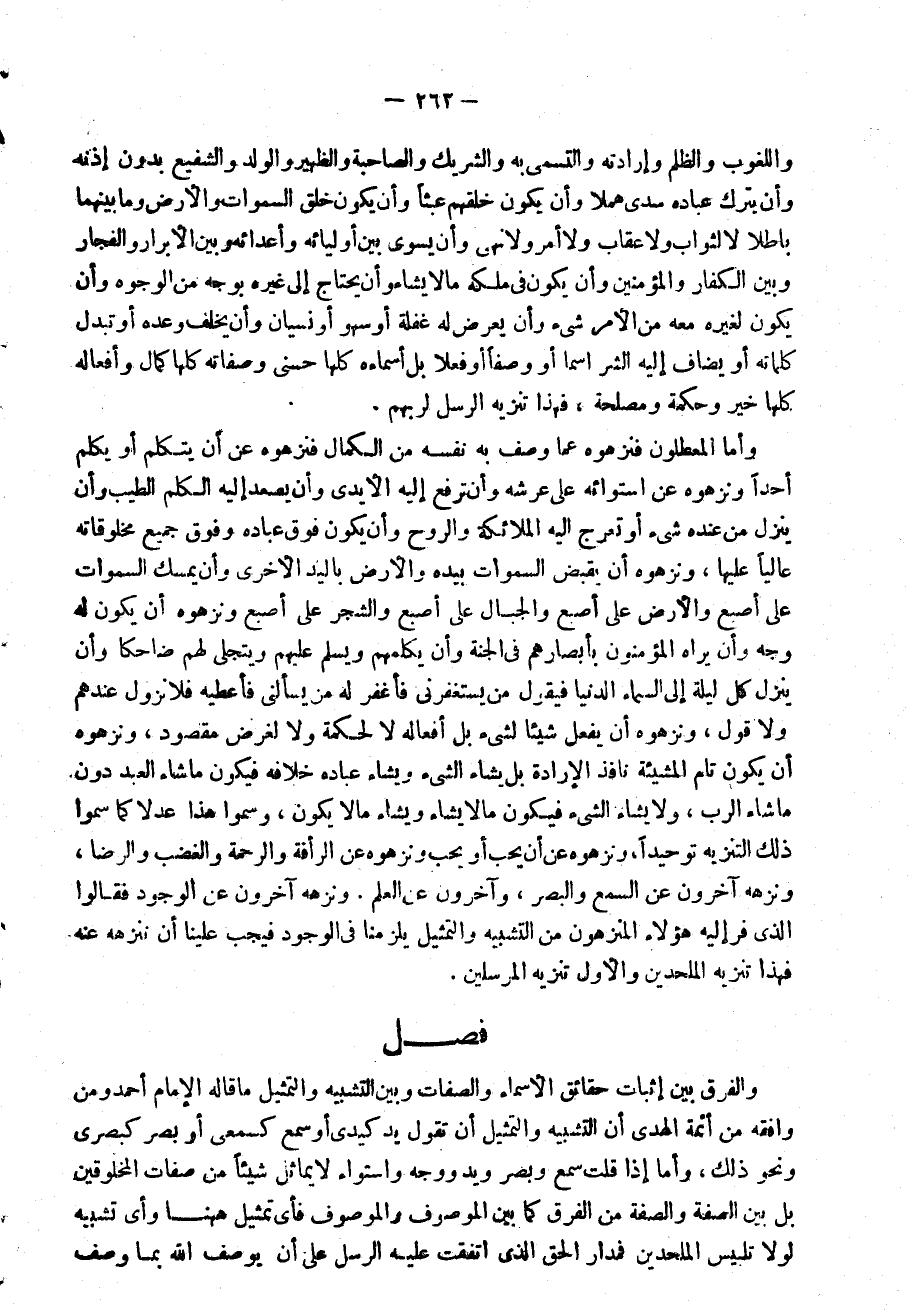 — ٢٦٢ —
واللغوب والظلم وإرادته والتسمى به والشريك والصاحبة والظهير والولد والشفيع بدون إذنه
وأن يترك عباده سدى هملا وأن يكون خلقهم عبثاً وأن يكون خلق السموات والأرض وما بينهما
باطلا لا لثواب ولا عقاب ولا أمر ولا نهى وأن يسوى بين أوليائه وأعدائه وبين الأبرار والفجار
وبين الكفار والمؤمنين وأن يكون فى ملكه مالا يشاء وأن يحتاج إلى غيره بوجه من الوجوه وأن
يكون لغيره معه من الأمر شىء وأن يعرض له غفلة أو سهو أو نسيان وأن يخلف وعده أو تبدل
كلماته أو يضاف إليه الشر اسما أو وصفاً أو فعلا بل أسماءه كلها حسنى وصفاته كلها كمال وأفعاله
كلها خير وحكمة ومصلحة ، فهذا تنزيه الرسل لربهم .
وأما المعطلون فنزهوه عما وصف به نفسه من الكمال فنزهوه عن أن يتكلم أو يكلم
أحداً ونزهوه عن استوائه على عرشه وأن ترفع إليه الأيدى وأن يصعد إليه الكلم الطيب وأن
ينزل من عنده شىء أو تعرج اليه الملائكة والروح وأن يكون فوق عباده وفوق جميع مخلوقاته
عالياً عليها ، ونزهوه أن يقبض السموات بيده والأرض باليد الأخرى وأن يمسك السموات
على أصبع والأرض على أصبع والجبال على أصبع والشجر على أصبع ونزهوه أن يكون له
وجه وأن يراه المؤمنون بأبصارهم فى الجنة وأن يكلمهم ويسلم عليهم ويتجلى لهم ضاحكا وأن
ينزل كل ليلة إلى السماء الدنيا فيقول من يستغفرنى فأغفر له من يسألنى فأعطيه فلا نزول عندهم
ولا قول ، ونزهوه أن يفعل شيئا لشىء بل أفعاله لا لحكمة ولا لغرض مقصود ، ونزهوه
أن يكون تام المشيئة نافذ الإرادة بل يشاء الشىء ويشاء عباده خلافه فيكون ماشاء العبد دون
ماشاء الرب ، ولا يشاء الشىء فيكون مالا يشاء ويشاء مالا يكون ، وسموا هذا عدلا كما سموا
ذلك التنزيه توحيداً، ونزهوه عن أن يحب أو يحب ونزهوه عن الرأفة والرحمة والغضب والرضا ،
ونزهه آخرون عن السمع والبصر ، وآخرون عن العلم . ونزهه آخرون عن الوجود فقالوا
الذى فر إليه هؤلاء المنزهون من التشبيه والتمثيل يلزمنا فى الوجود فيجب علينا أن ننزهه عنه
فهذا تنزيه الملحدين والأول تنزيه المرسلين .
فصــل
والفرق بين إثبات حقائق الأسماء والصفات وبين التشبيه والتمثيل ماقاله الإمام أحمد ومن
وافقه من أئمة الهدى أن التشبيه والتمثيل أن تقول يد كيدى أو سمع كسمعى أو بصر كبصرى
ونحو ذلك ، وأما إذا قلت سمع وبصر ويد ووجه واستواء لا يماثل شيئاً من صفات المخلوقين
بل بين الصفة والصفة من الفرق كما بين الموصوف والموصوف فأى تمثيل ههنا وأى تشبيه
لولا تلبيس الملحدين فمدار الحق الذى اتفقت عليه الرسل على أن يوصف الله بما وصف